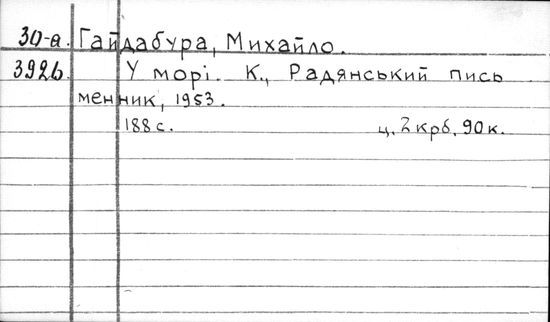 30-а. Гайдабура, Михайло.
3926. У морі. К., Радянський пись
менник, 1953.
188 с. ц. 2 крб. 90 к.